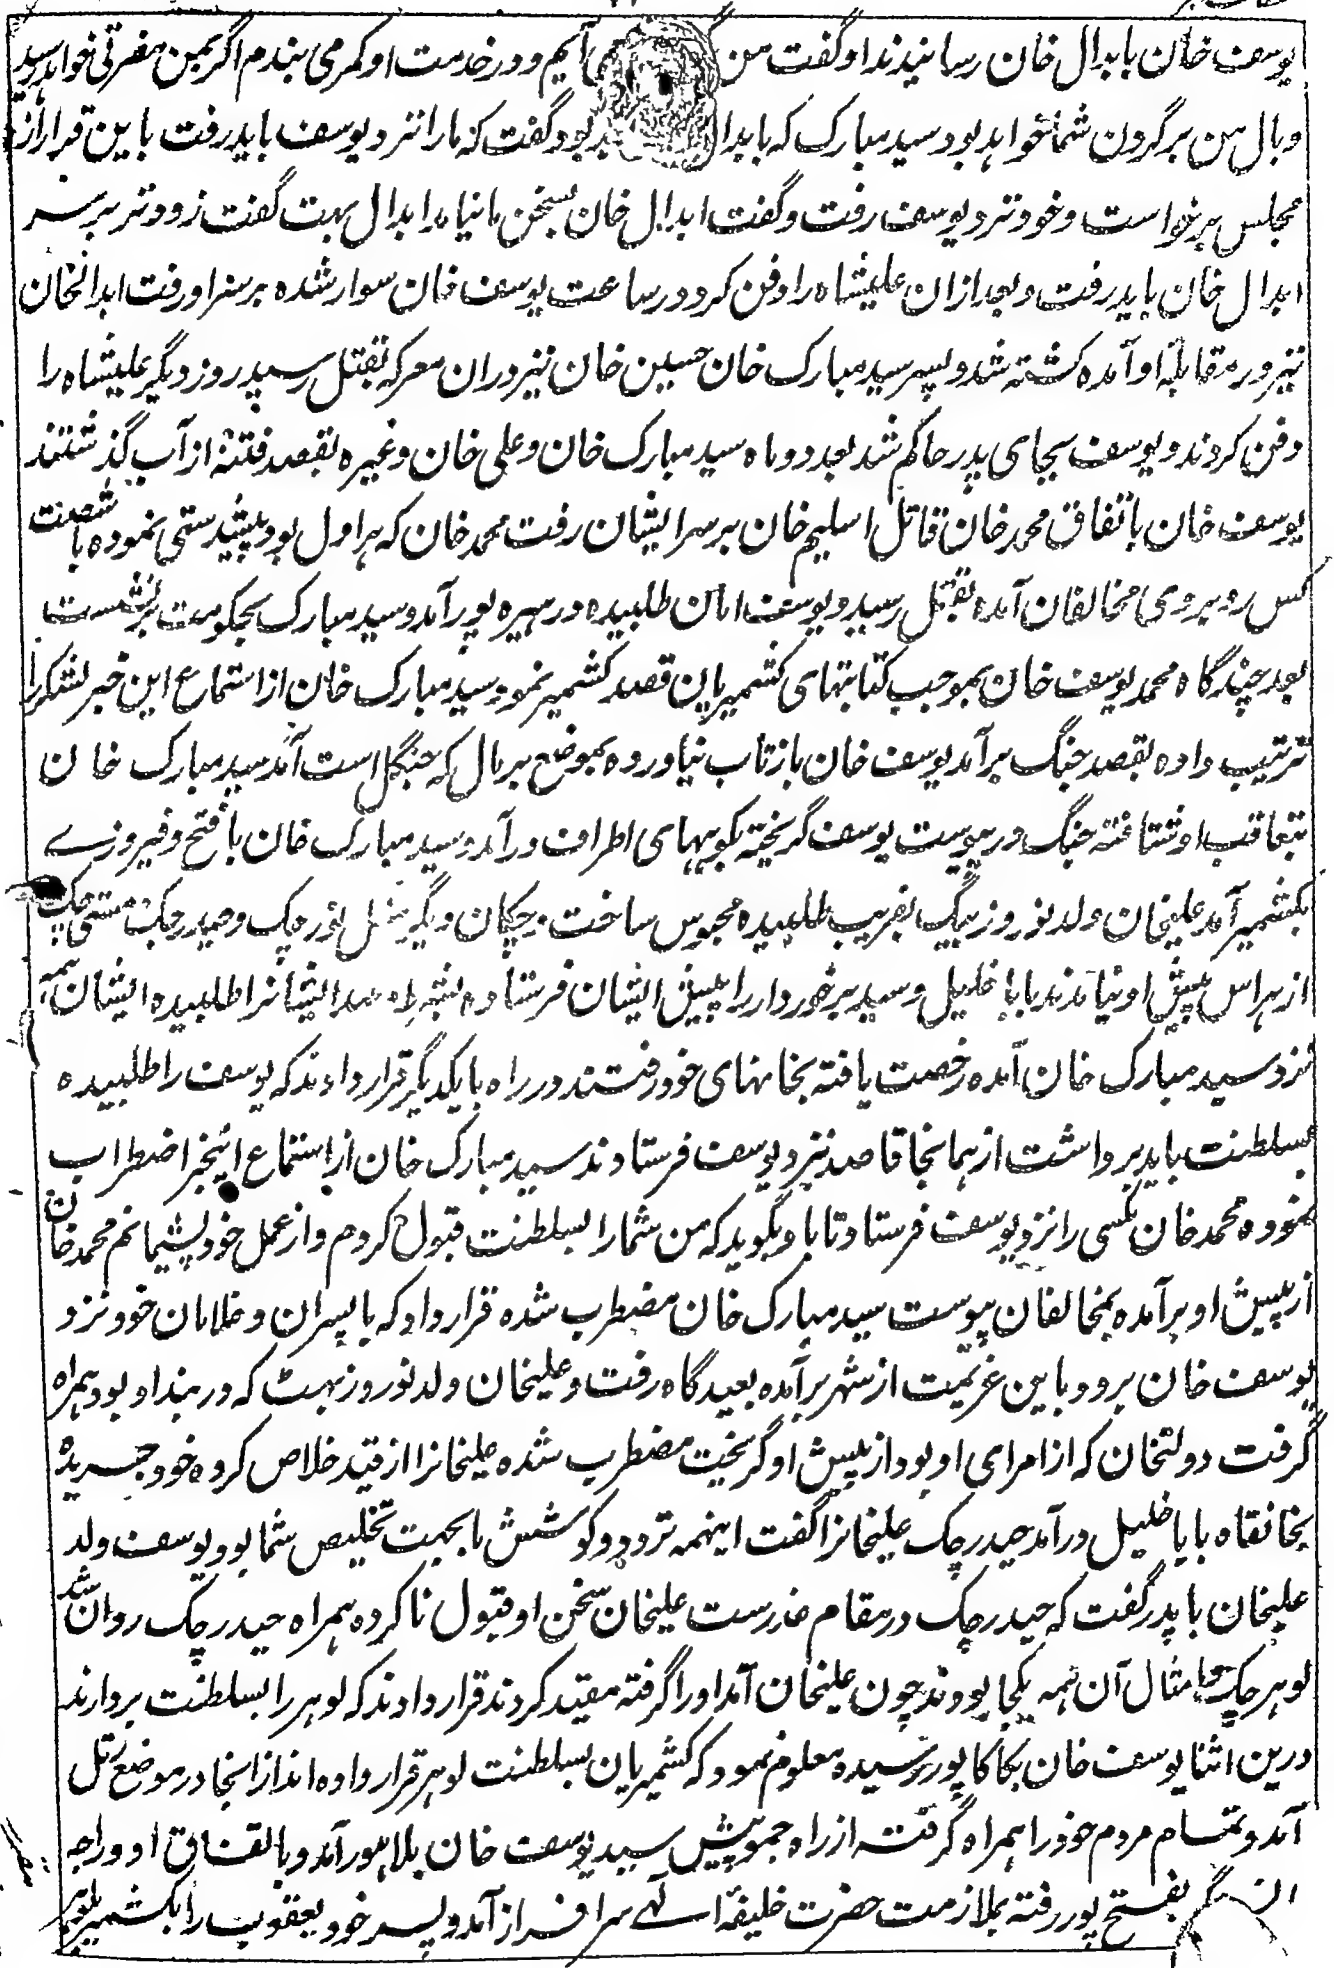 یوسف خان بابدال خان رسانیدند او گفت من می آیم و در خدمت او کمر می بندم اگر بمن مضرتی خواهد رسید
وبال من برگردن شما خواهد بود سید مبارک که بابدال بد بود گفت که ما را نزد یوسف باید رفت باین قرار از
مجلس برخواست و خود نزد یوسف رفت و گفت ابدال خان بسخن ما نیامد ابدال بهت گفت زودتر بر سر
ابدال خان باید رفت و بعد ازان علیشاه را دفن کرد در ساعت یوسف خان سوار شده بر سر او رفت ابدالخان
نیز در مقابله او آمده کشته شد و پسر سید مبارک خان حسین خان نیز دران معرکه بقتل رسید روز دیگر علیشاه را
دفن کردند و یوسف بجای پدر حاکم شد بعد دو ماه سید مبارک خان و علی خان و غیره بقصد فتنه از آب گذشتند
یوسف خان باتفاق محمد خان قاتل اسلیم خان بر سر ایشان رفت محمد خان که هراول بود پیشدستی نموده با شصت
کس روبروی مخالفان آمده بقتل رسید و یوسف امان طلبیده در هیره پور آمد و سید مبارک بحکومت برنشست
بعد چندگاه محمد یوسف خان بموجب کتابتهای کشمیریان قصد کشمیر نمود سید مبارک خان از استماع این خبر لشکر را
ترتیب داده بقصد جنگ برآمد یوسف خان باز تاب نیاورده بموضع برمال که جنگل است آمد سید مبارک خان
بتعاقب او شتافته جنگ در پیوست یوسف گریخته بکوههای اطراف درآمد و سید مبارک خان با فتح و فیروزے
بکشمیر آمد علیخان ولد نوروز بیگ بفریب طلبیده محبوس ساخت و چکان دیگر مثل لوهر چک و حیدر چک هستی چک
از هراس پیش او نیامدند بابا خلیل و سید برخوردار را پیش ایشان فرستاده بشرط ایشانرا طلبیده ایشان همه
نزد سید مبارک خان آمده رخصت یافته بخانهای خود رفتند در راه بایکدیگر قرار دادند که یوسف را طلبیده
بسلطنت باید برداشت از همانجا قاصد نزد یوسف فرستادند سید مبارک خان از استماع اینخبر اضطراب
نموده محمد خان بکسی را نزد یوسف فرستاد تا باو بگوید که من شما را بسلطنت قبول کردم و از عمل خود پشیمانم محمد خان
از پیش او برآمده بمخالفان پیوست سید مبارک خان مضطرب شده قرار داد که با پسران و غلامان خود نزد
یوسف خان برود باین عزیمت از شهر برآمده بعیدگاه رفت و علیخان ولد نوروز بهت که در بند او بود همراه
گرفت دولتخان که از امرای او بود از پیش او گریخت مضطرب شده علیخانرا از قید خلاص کرده خود جریده
بخانقاه بابا خلیل درآمد حیدر چک علیخانرا گفت اینهمه تردد و کوشش ما بجهت تخلیص شما بود یوسف ولد
علیخان با پدر گفت که حیدر چک در مقام غدر ست علیخان سخن او قبول ناکرده همراه حیدر چک روان شد
لوهر چک و امثال آن همه یکجا بودند چون علیخان آمد او را گرفته مقید کردند قرار دادند که لوهر را بسلطنت بردارند
درین اثنا یوسف خان بکاکاپور رسیده معلوم نمود که کشمیریان بسلطنت لوهر قرار داده اند از انجا در موضع تل
آمد و تمام مردم خود را همراه گرفته از راه جمو پیش سید یوسف خان بلاهور آمد و باتفاق او و راجه
بفتح پور رفته بملازمت حضرت خلیفۂ الهے سرافراز آمد و پسر خود یعقوب را بکشمیر